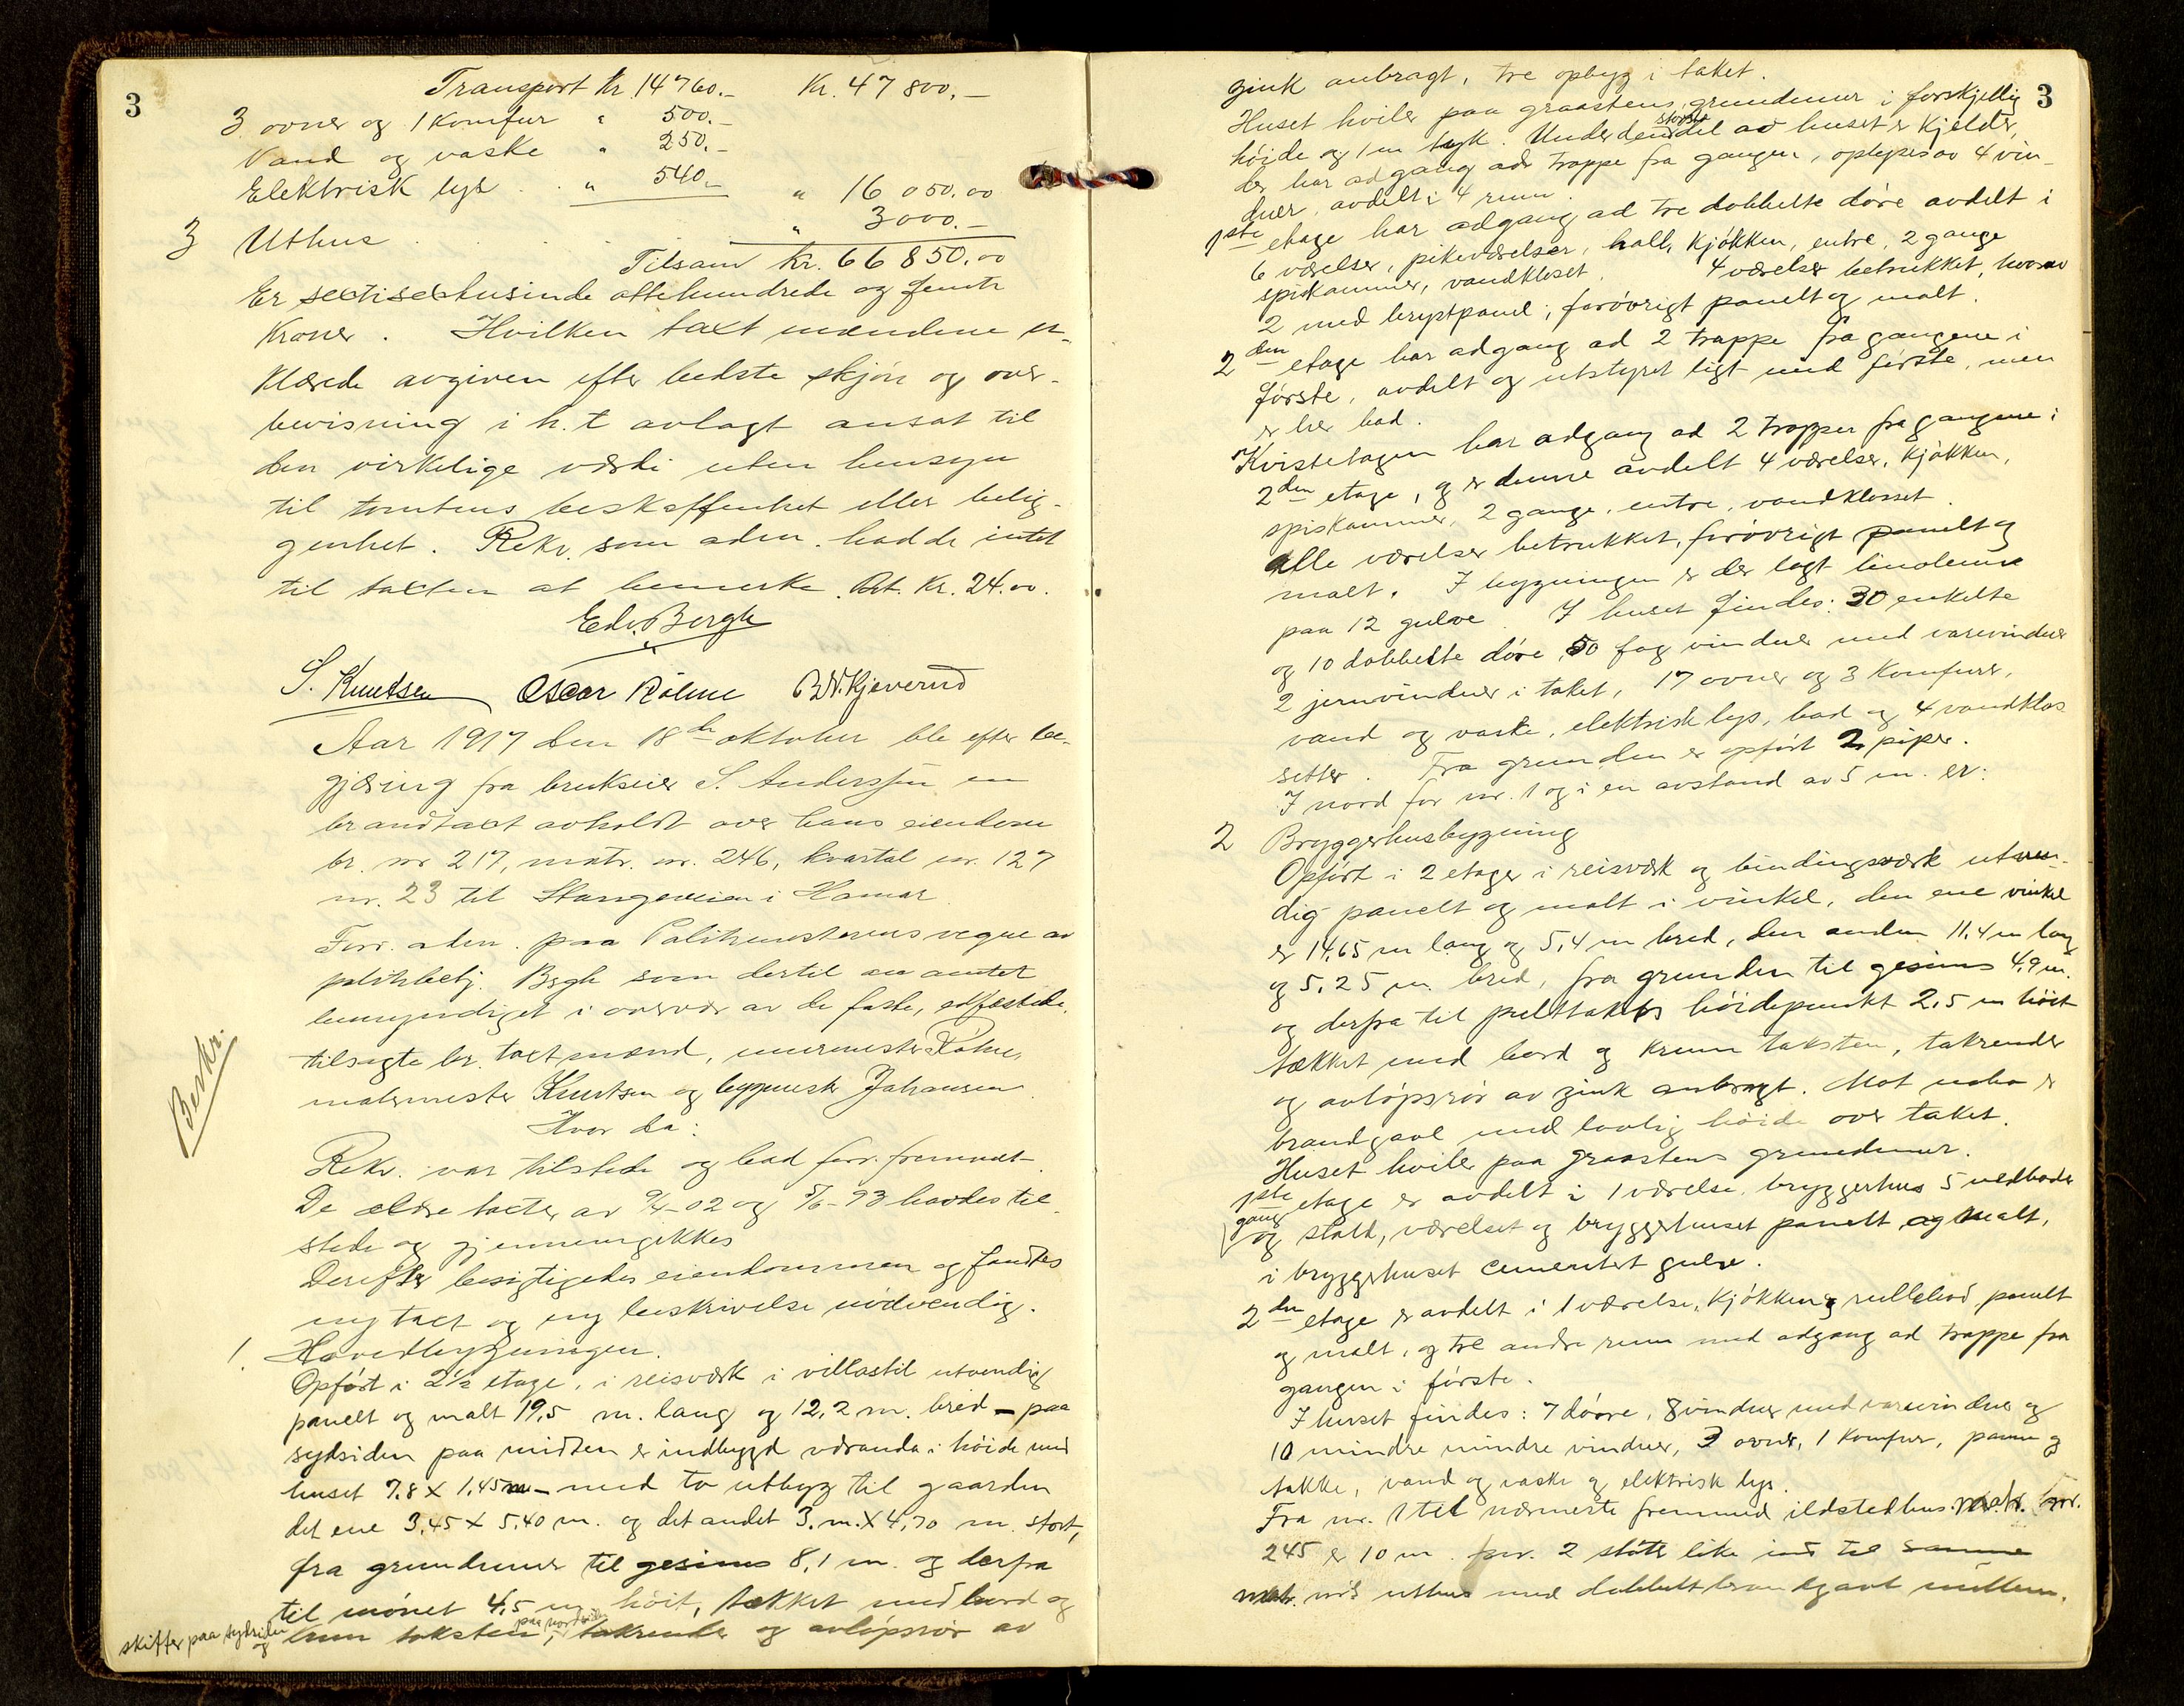 3
Transport Kr. 14760.- Kr. 47800.-
3 ovner og 1 Komfur " 500.-
Vand og vaske " 250.-
Elektrisk lys . . " 540.- " 16 050.00
3 Uthus . . . . . " 3000.-
Tilsam Kr. 66850.00
Er sextisextusinde ottehundrede og femti
Kroner. Hvilken taxt mændene er-
klærede avgiven efter bedste skjøn og over-
bevisning i h.t avlagt ansat til
den virkelige værdi uten hensyn
til tomtens beskaffenhet eller belig-
genhet. Rekv. som aden. hadde intet
til taxten at bemerke. Bet. Kr. 24.00.
Edv. Bergh
S. Knutsen Oscar Røhne B.N. Kjeverud
Aar 1917 den 18de oktober ble efter be-
gjæring fra brukseier S. Anderssen en
brandtaxt avholdt over hans eiendom
br. nr 217, matr. nr. 246, kvartal nr. 127
nr. 23 til Stangeveien i Hamar.
Forr. aden. paa Politimesterens vegne av
politibetj. Bergh som dertil av amtet
bemyndiget i overvær av de faste, edfæstede,
tilsagte br. taxtmænd, murmester Røhne,
malermester Knutsen og byggmester Johansen.
Hvor da:
Rekv. var tilstede og bad forr. fremmet.
De ældre taxter av 9/4-02 og 5/6-93 havdes til-
stede og gjennemgikkes
Derefter besigtigedes eiendommen og fandtes
ny taxt og ny beskrivelse nødvendig.
Beskr.
1. Hovedbygningen.
Opført i 2½ etage, i reisverk i villastil utvendig
panelt og malt 19,5 m. lang og 12,2 m. bred - paa
sydsiden paa midten er indbygd veranda i høide med
huset 7.8 X 1,45 m - med to utbyg til gaarden
det ene 3,45 X 5,40 m. og det andet 3. m. X 4,70 m. stort,
fra grundmur til gesims 8,1 m. og derfra
til mønet 4,5 m høit, tækket med bord og
skiffer paa sydsiden og krum taksten paa nordsiden, takrender og avløpsrør av
3
zink anbragt, tre opbyg i taket.
Huset hviler paa graastens grundmur i forskjellig
høide og 1 m tyk. Under den største del av huset er Kjelder,
der har adgang ad trappe fra gangen, oplyses av 4 vin-
duer, avdelt i 4 rum.
1ste etage har adgang ad tre dobbelte døre avdelt i
6 værelser, pikeværelser, hall, Kjøkken, entre, 2 gange
spiskammer, vandkloset. 4 værelser betrukket, hvorav
2 med brystpanel, forøvrigt panelt og malt.
2den etage har adgang ad 2 trappe fra gangene i
første, avdelt og utstyret ligt med første, men
er her bad.
Kvistetagen har adgang ad 2 trapper fra gangene i
2den etage, og er denne avdelt 4 værelser, Kjøkken,
spiskammer, 2 gange, entre, vandklosset.
Alle værelser betrukket, forøvrigt panelt og
malt. I bygningen er der lagt linoleum
paa 12 gulve. I huset findes: 30 enkelte
og 10 dobbelte døre, 50 fag vinduer med varevinduer
2 jernvinduer i taket, 17 ovner og 3 Komfurer,
vand og vaske, elektrisk lys, bad og 4 vandklos
setter. Fra grunden er opført 2 piper.
I nord for nr. 1 og i en avstand av 5 m. er:
2 Bryggerhusbygning
Opført i 2 etager i reisverk og bindingsverk utven-
dig panelt og malt i vinkel, den ene vinkel
er 14,65 m lang og 5,4 m bred, den anden 11,4 m lang
og 5,25 m. bred, fra grunden til gesims 4,9 m.
og derfra til pulttakets høidepunkt 2,5 m høit
tækket med bord og krum taksten, takrender
og avløpsrør av zink anbragt. Mot nabo er
brandgavl med lovlig høide over taket.
Huset hviler paa graastens grundmur.
1ste etage er avdelt i 1 værelse, bryggerhus 5 vedboder
gang og stald, værelset og bryggerhuset panelt og malt,
i bryggerhuset cementert gulv.
2den etage er avdelt i 1 værelse, Kjøkken og rullebod panelt
og malt, og tre andre rum med adgang ad trappe fra
gangen i første.
I huset findes: 7 døre, 8 vinduer med varevinduer og
10 mindre mindre vinduer, 3 ovner, 1 Komfur, panne og
takke, vand og vaske og elektrisk lys.
Fra nr. 1 til nærmeste fremmed ildstedhus matr. nr.
245 er 10 m. nr. 2 støter like ind til samme
matr. nr's uthus med dobbelt brandgavl mellem.